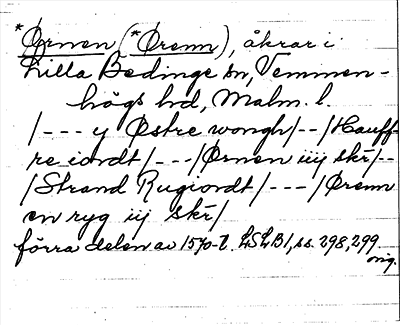 *Ørnen (*Ørenn), åkrar i
Lilla Bedinge sn, Vemmen-
högs hd, Malm. l.
/--- y Østre wongh/--/Hauff-
re iordt/---/Ørnen iiij skr/--
/Strand Rugiordt/---/Ørenn
en ryg iij skr/
förra delen av 1570-t. LSLB1, ss. 298, 299
orig.